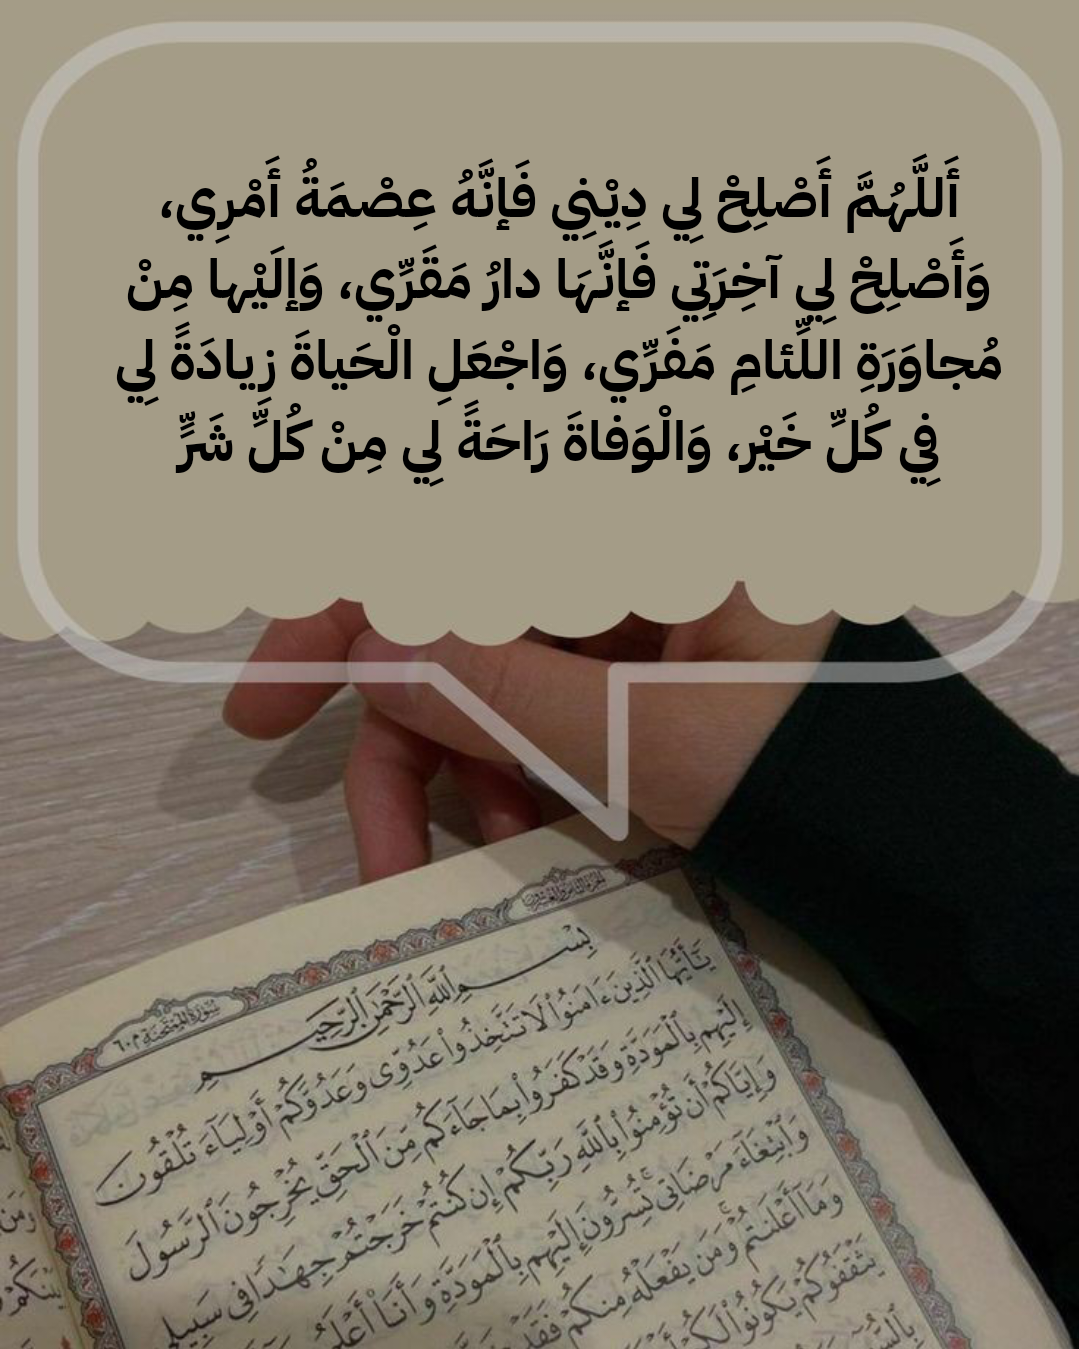 أَللَّهُمَّ أَصْلِحْ لِي دِيْنِي فَإِنَّهُ عِصْمَةُ أَمْرِي،
وَأَصْلِحْ لِي آخِرَتِي فَإِنَّهَا دارُ مَقَرِّي، وَإِلَيْها مِنْ
مُجاوَرَةِ اللِّئامِ مَفَرِّي، وَاجْعَلِ الْحَياةَ زِيادَةً لِي
فِي كُلِّ خَيْر، وَالْوَفاةَ رَاحَةً لِي مِنْ كُلِّ شَرٍّ
سُورَةُ المُمْتَحنَة ٦٠
بِسْمِ ٱللَّهِ ٱلرَّحْمَٰنِ ٱلرَّحِيمِ
يَٰٓأَيُّهَا ٱلَّذِينَ ءَامَنُوا۟ لَا تَتَّخِذُوا۟ عَدُوِّى وَعَدُوَّكُمْ أَوْلِيَآءَ تُلْقُونَ
إِلَيْهِم بِٱلْمَوَدَّةِ وَقَدْ كَفَرُوا۟ بِمَا جَآءَكُم مِّنَ ٱلْحَقِّ يُخْرِجُونَ ٱلرَّسُولَ
وَإِيَّاكُمْ أَن تُؤْمِنُوا۟ بِٱللَّهِ رَبِّكُمْ إِن كُنتُمْ خَرَجْتُمْ جِهَٰدًا فِى سَبِيلِى
وَٱبْتِغَآءَ مَرْضَاتِى تُسِرُّونَ إِلَيْهِم بِٱلْمَوَدَّةِ وَأَنَا۠ أَعْلَمُ
وَمَآ أَعْلَنتُمْ وَمَن يَفْعَلْهُ مِنكُمْ فَقَدْ
يَثْقَفُوكُمْ يَكُونُوا۟ لَكُمْ